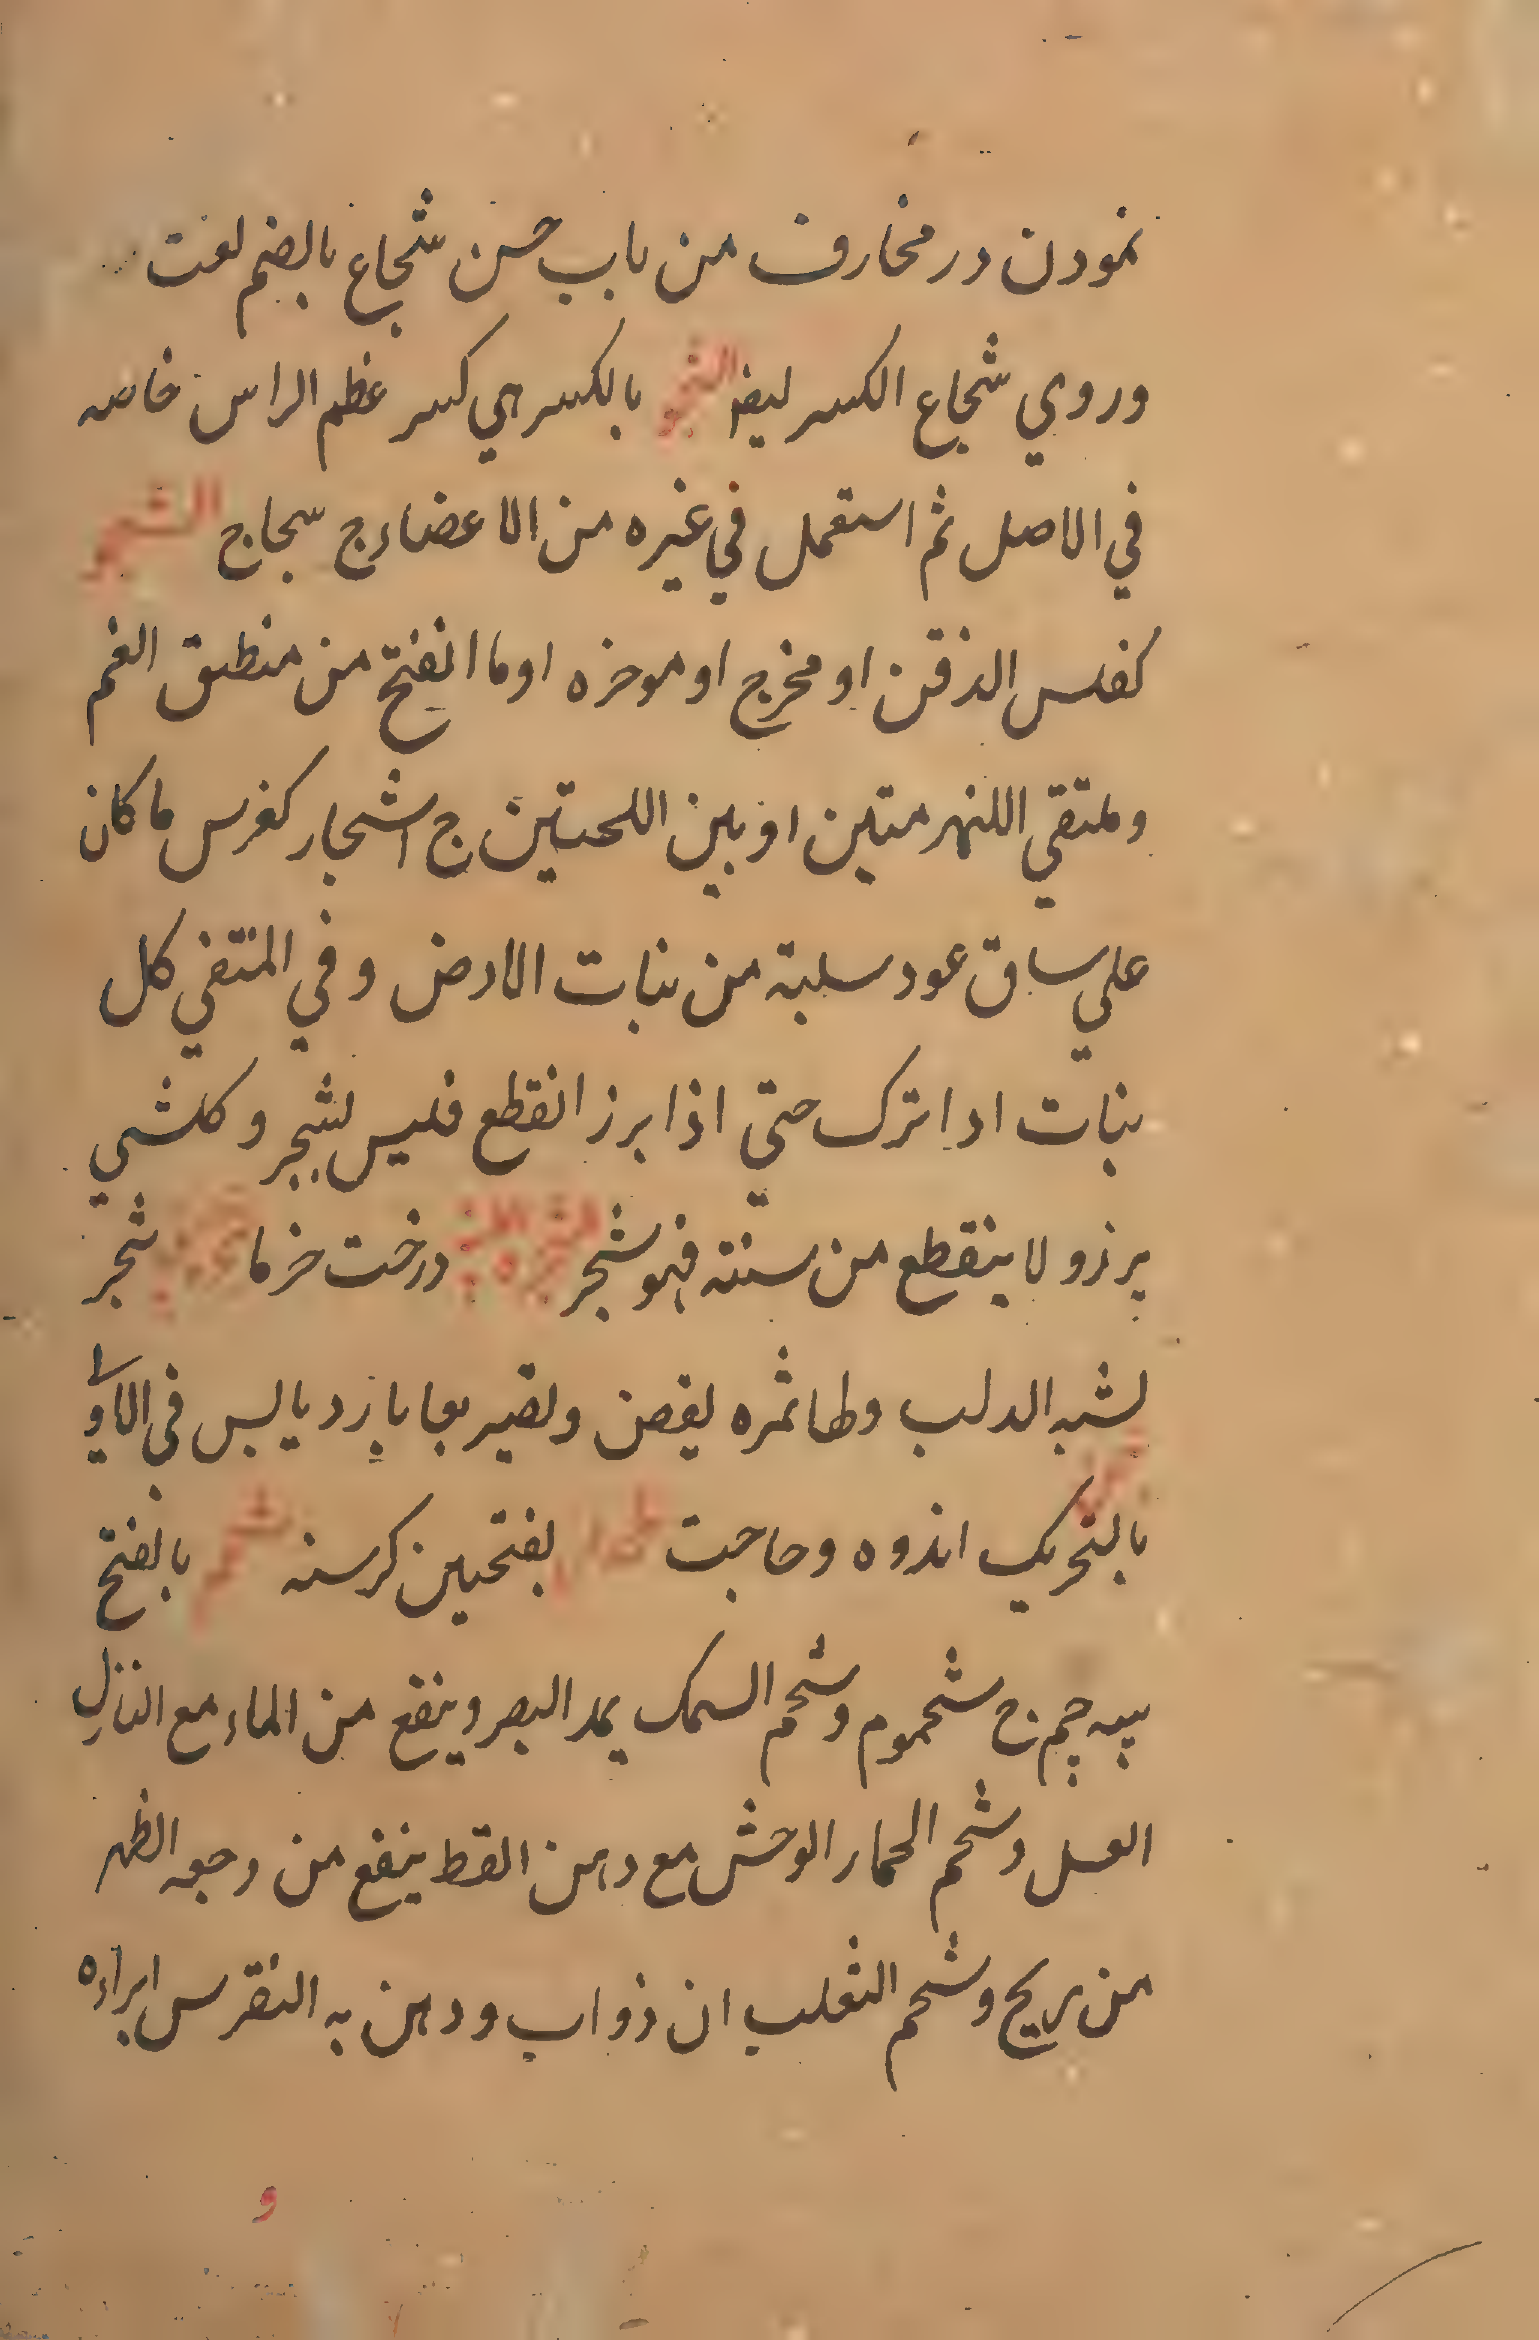 نمودن در مخارف من باب حسن شجاع بالضم لغت
وروي شجاع الكسر ليضا بالكسر هي كسر عظم الراس خاصه
في الاصل ثم استعمل في غيره من الاعضاء ج سجاج الشجر
كفلس الذقن او مخرج او موخره اوما انفتح من منطبق الفم
وملتقي اللنهر متين او بين اللحيتين ج اشجار كفرس ما كان
علي ساق عود سلبة من بنات الارض وفي المنتفي كل
بنات اذا ترك حتي اذا برز انقطع فليس لشجر وكلشي
برز و لا ينقطع من سنته فهو شجر درخت خرما شجر
لشبه الدلب وطا ثمره ليغصن ولصير بعا بازرد يالبس في الاو
بالتحريك اندوه وحاجت بفتحين كرسنه شحم بالفتح
پيه چم ج شحموم وشحم السمك يمد البصر وينفع من الماء مع النازل
العسل وشحم الحمار الوحش مع دهن القط ينفع من وجعه الظهر
من ريح وشحم الثعلب ان ذواب ودهن به النقرس ابراءه
و